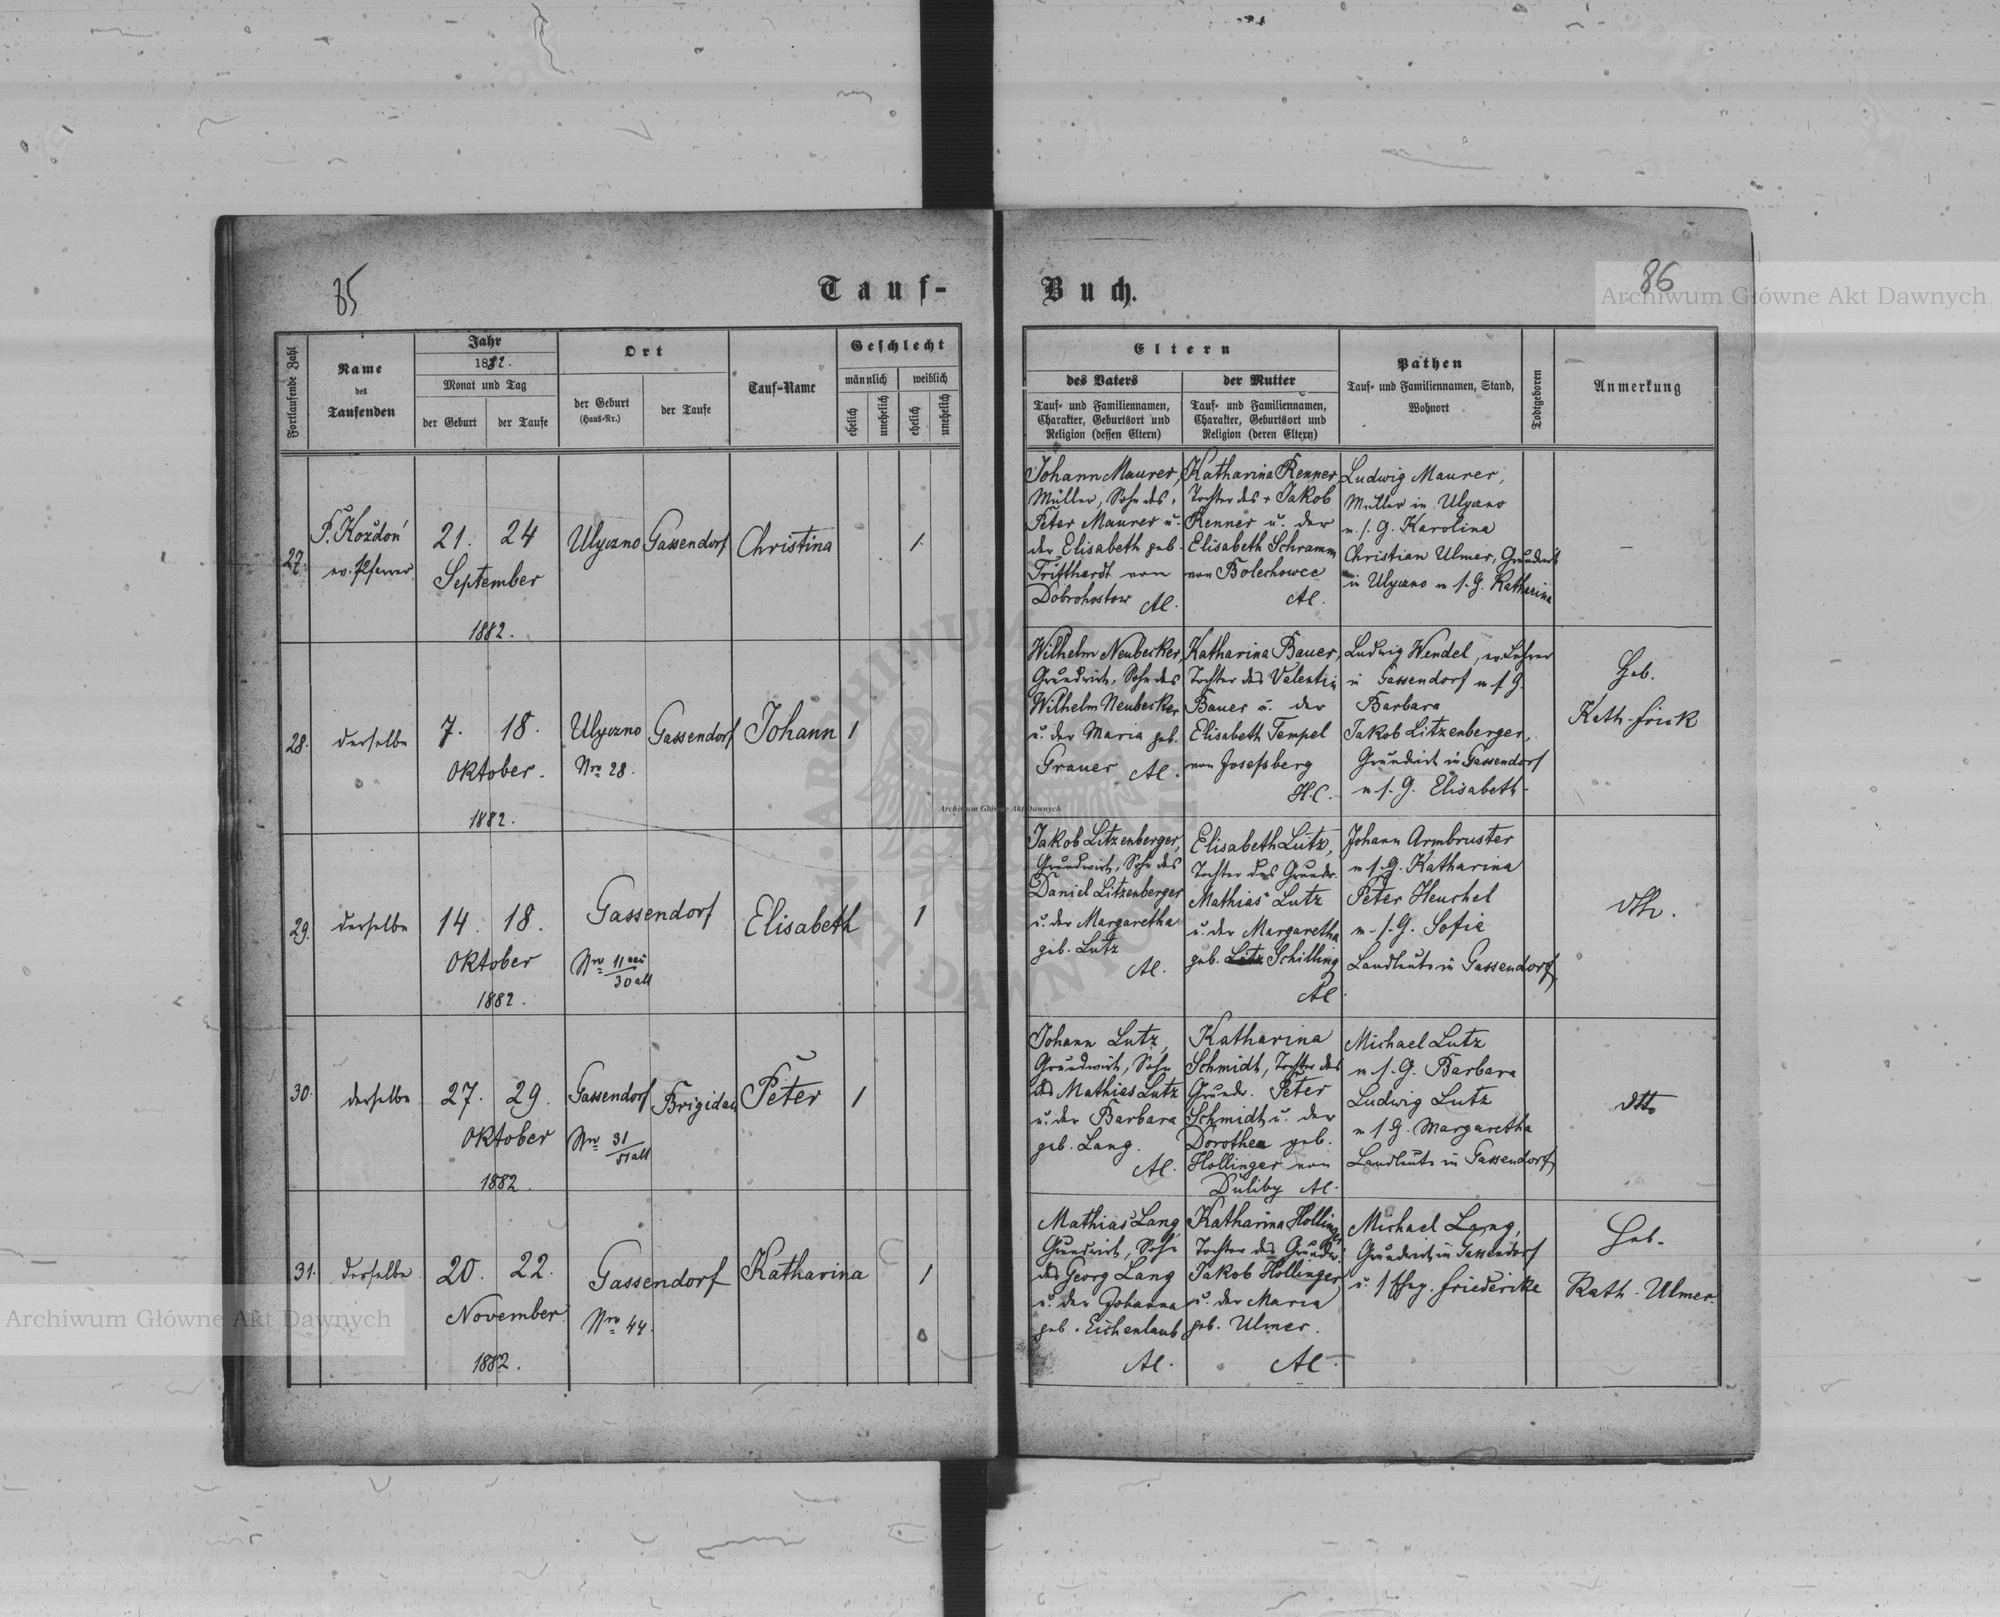 85
Tauf-
Fortlaufende Zahl
Name
des
Taufenden
Jahr
1882.
Monat und Tag
der Geburt
der Taufe
Ort
der Geburt
(Haus-Nr.)
der Taufe
Tauf-Name
Geschlecht
männlich
weiblich
ehelich
unehelich
ehelich
unehelich
27.
F. Kozdoń
ev. Pfarrer.
21. 24
September
1882.
Ulyczno
Gassendorf
Christina
1.
28.
derselbe
7. 18.
Oktober.
1882.
Ulyczno
Nro 28.
Gassendorf
Johann
1
29.
derselbe
14. 18.
Oktober
1882.
Gassendorf
Nro 11 neu
30 alt
Elisabeth
1
30.
derselbe
27. 29.
Oktober
1882.
Gassendorf
Nro 31
51 alt
Brigidau
Peter
1
31.
derselbe
20. 22.
November
1882.
Gassendorf
Nro 44.
Katharina
1
86
Buch.
Eltern
des Vaters
Tauf- und Familiennamen,
Charakter, Geburtsort und
Religion (dessen Eltern)
der Mutter
Tauf- und Familiennamen,
Charakter, Geburtsort und
Religion (deren Eltern)
Pathen
Tauf- und Familiennamen, Stand,
Wohnort
Todtgeboren
Anmerkung
Johann Maurer,
Müller, Sohn des +
Peter Maurer u.
der Elisabeth geb.
Tritthardt von
Dobrohostow AC.
Katharina Renner,
Tochter des + Jakob
Renner u. der
Elisabeth Schramm
von Bolechowce
AC.
Ludwig Maurer,
Müller in Ulyczno
m. s. G. Karolina
Christian Ulmer, Grundwirt
in Ulyczno m s. G. Katharina
–
Wilhelm Neubecker,
Grundwirt, Sohn des
Wilhelm Neubecker
u. der Maria geb.
Grauer AC.
Katharina Bauer,
Tochter des Valentin
Bauer u. der
Elisabeth Tempel
von Josefsberg
H.C.
Ludwig Wendel, ev. Lehrer
in Gassendorf m s G.
Barbara
Jakob Litzenberger,
Grundwirt in Gassendorf
m s. G. Elisabeth.
Heb.
Kath. Frick
Jakob Litzenberger,
Grundwirt, Sohn des
Daniel Litzenberger
u. der Margaretha
geb. Lutz
AC.
Elisabeth Lutz,
Tochter des Grundw.
Mathias Lutz
u. der Margaretha
geb. Schilling
AC.
Johann Armbruster
m s. G. Katharina
Peter Heuchel
m. s. G. Sofie
Landleute in Gassendorf
dtto.
Johann Lutz,
Grundwirt, Sohn
des Mathias Lutz
u. der Barbara
geb. Lang.
AC.
Katharina
Schmidt, Tochter des
Grundw. Peter
Schmidt u. der
Dorothea geb.
Hollinger von
Duliby AC.
Michael Lutz
m s. G. Barbara
Ludwig Lutz
m s G. Margaretha
Landleute in Gassendorf
dtto
Mathias Lang
Grundwirt, Sohn
des Georg Lang
u. der Johanna
geb. Eichenlaub
AC.
Katharina Hollinger
Tochter des Grundw.
Jakob Hollinger
u. der Maria
geb. Ulmer.
AC.
Michael Lang,
Grundwirt in Gassendorf
u. s Eheg. Friedericke
Heb.
Kath. Ulmer.
Archiwum Główne Akt Dawnych
Archiwum Główne Akt Dawnych
Archiwum Główne Akt Dawnych